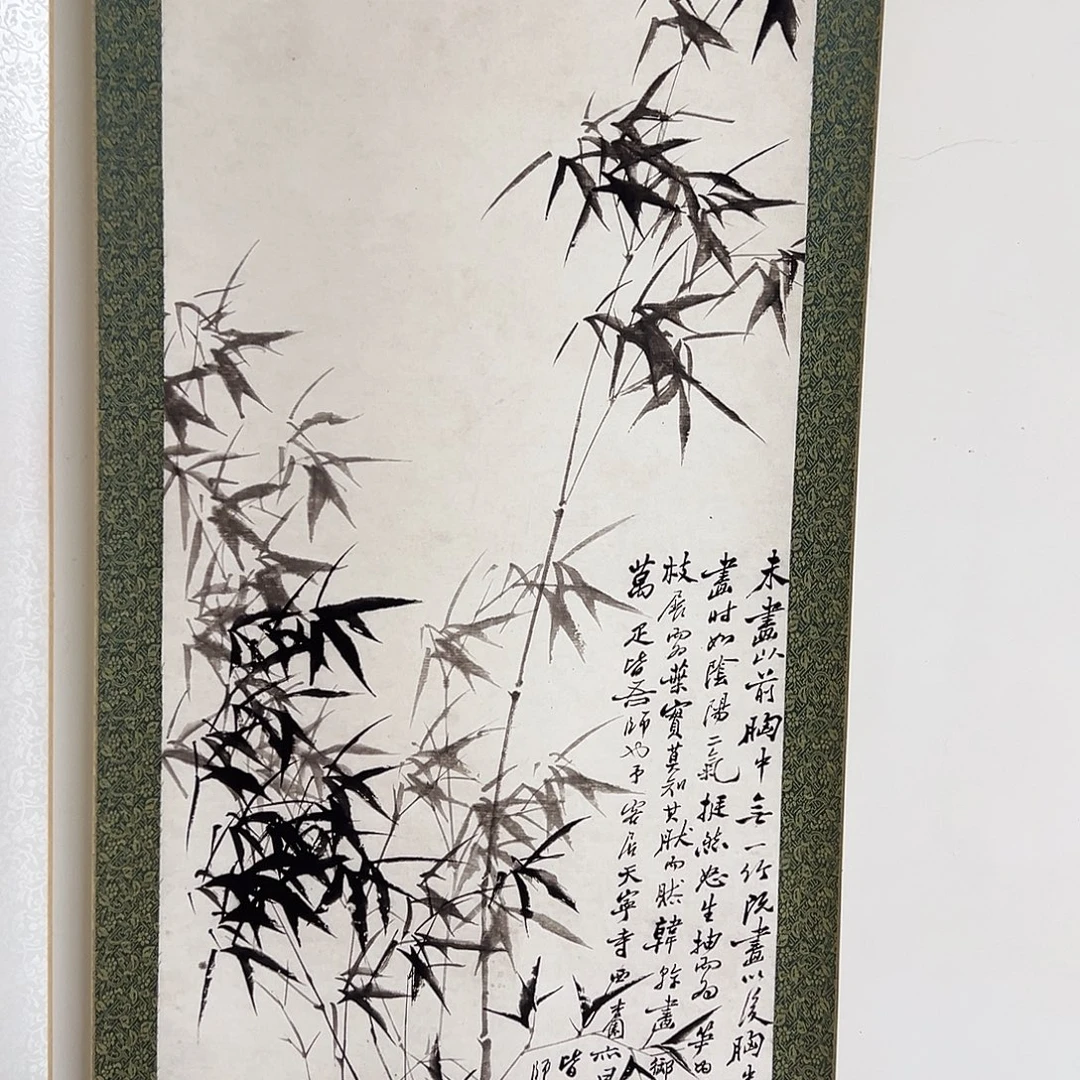 未畫以前胸中無一竹既畫以後胸
畫時如陰陽二氣挺然怒生抽而為笋為
枝展而為葉實莫知其然而然韓幹畫御
萬疋皆吾師也予客居天寧寺西
皆
師